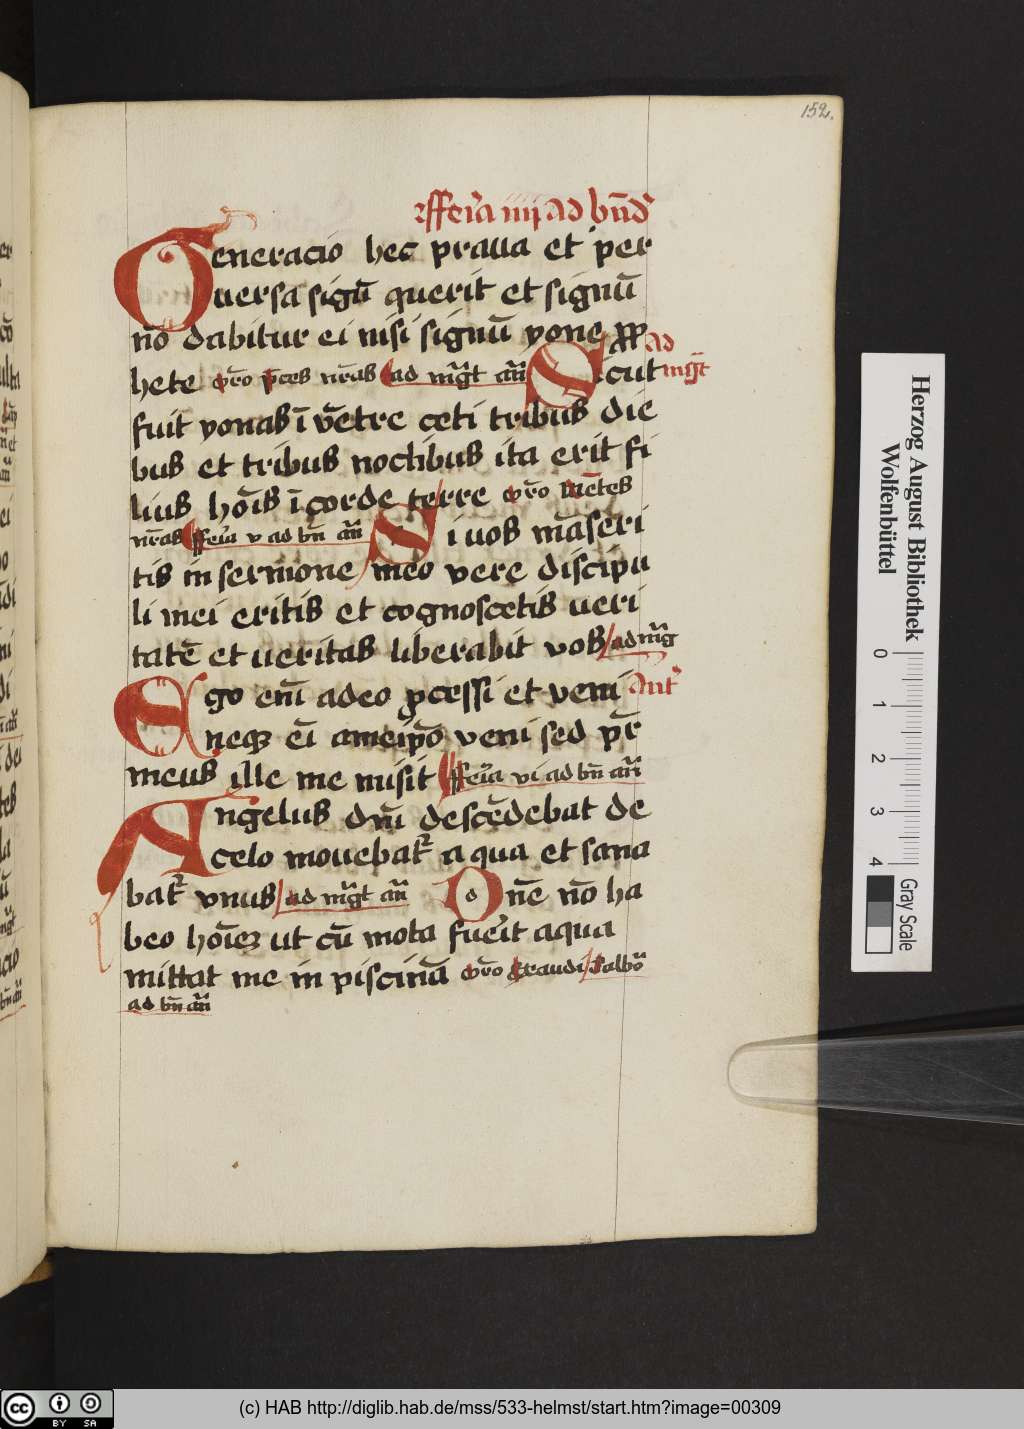 152.
ffeīa iiij ad bn̄d
Generacio hec praua et per
uersa signū querit et signū
nō dabitur ei nisi signū yone pro
phete
hete or̄o p̄ces nr̄as ad mg̃t an̄
Sicut
ad
mg̃t
fuit yonas ī vētre ceti tribus die
bus et tribus noctibus ita erit fi
lius hoīs ī corde terre or̄o Mētes
nr̄as ffeīa v ad bn̄ an̄
Si uos māseri
tis in sermone meo vere discipu
li mei eritis et cognoscetis ueri
tatē et ueritas liberabit vos ad mg̃
Ego enī adeo p̱cessi et veni
Ant
neqꝫ eī ameip̄o veni sed pr̄
meus ille me misit ffeīa vi ad bn̄ an̄
Angelus dn̄i descēdebat de
celo mouebat᷑ aqua et sana
bat᷑ vnus ad mg̃t an̄ Donē nō ha
beo hoīeꝫ ut cū mota fuēit aqua
mittat me in piscinā or̄o Exaudi Salbo
ad bn̄ an̄
Herzog August Bibliothek
Wolfenbüttel
0 1 2 3 4
Gray Scale
cc BY SA
(c) HAB http://diglib.hab.de/mss/533-helmst/start.htm?image=00309